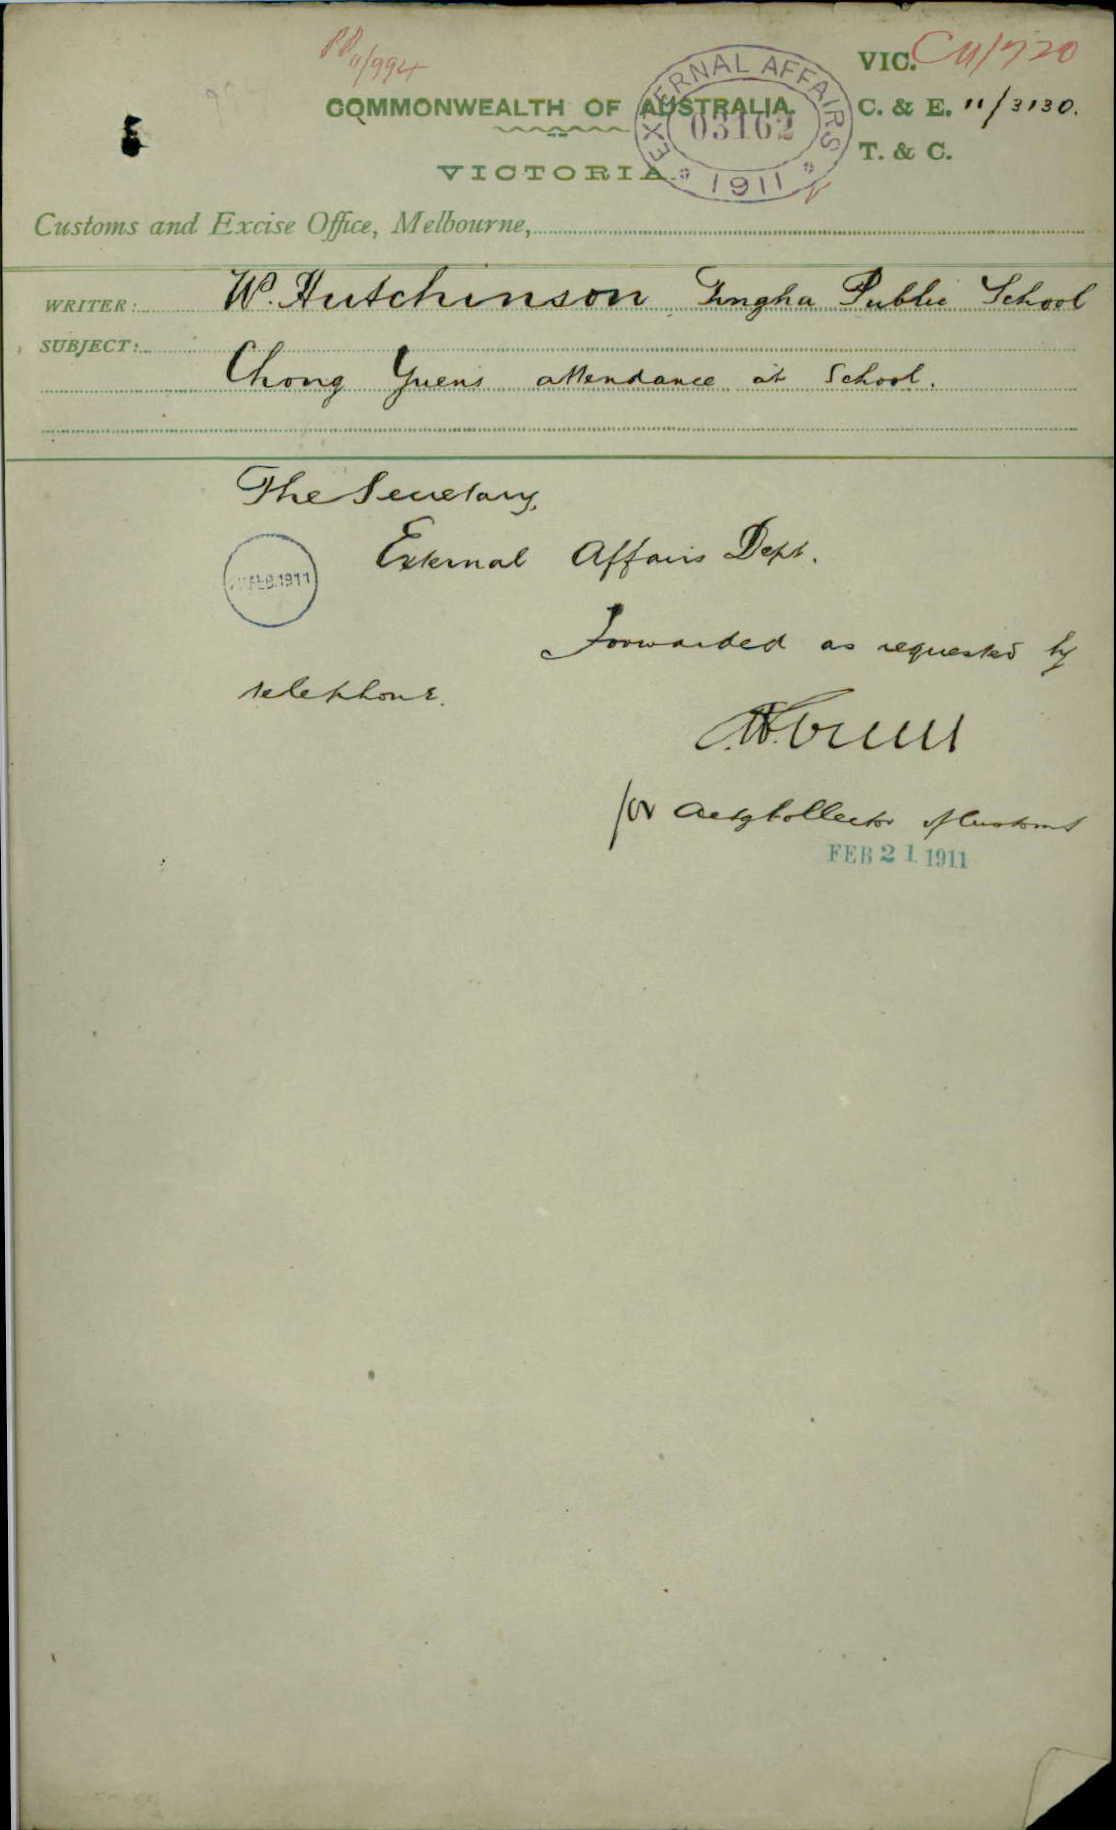 COMMONWEALTH OF AUSTRALIA.
VICTORIA.
EXTERNAL AFFAIRS
03162
1911
VIC. C11/
C. & E. 11/3130.
T. & C.
11/994
Customs and Excise Office, Melbourne,
WRITER: W. Hutchinson Tingha Public School
SUBJECT:
Chong Yuens attendance at School.
The Secretary,
External Affairs Dept.
FEB 1911
Forwarded as requested by
telephone.
for Actg Collector of Customs
FEB 21 1911